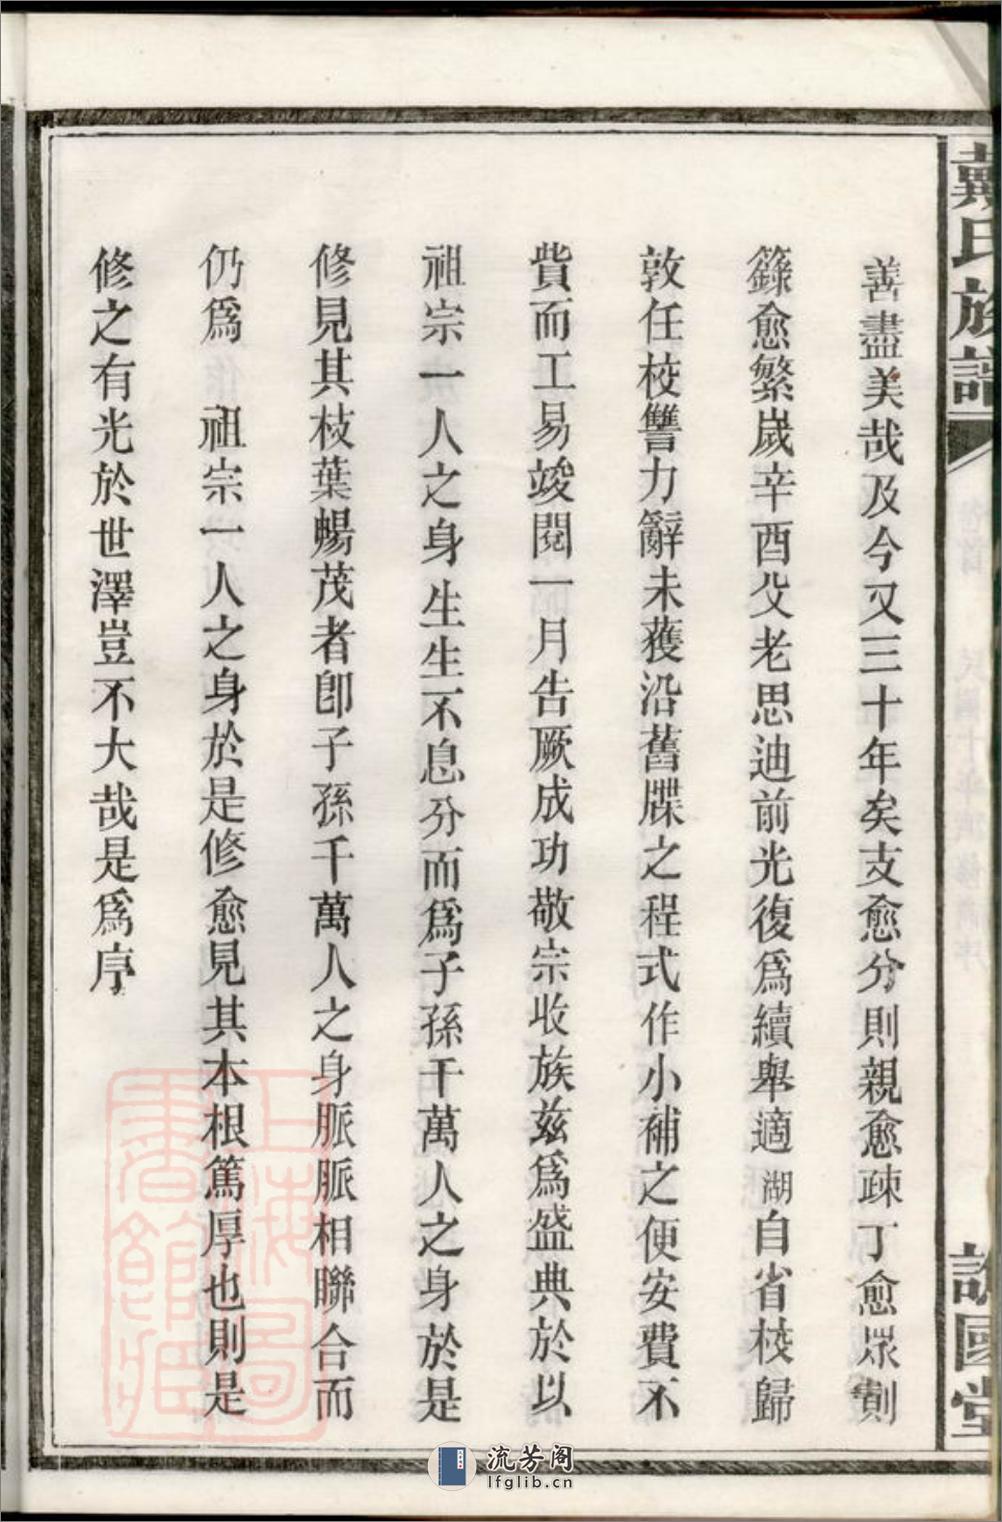 戴氏族譜
善盡美哉及今又三十年矣支愈分則親愈疎丁愈眾則
籙愈繁歲辛酉父老思迪前光復爲續舉適湖自省校歸
敦任校讐力辭未獲沿舊牒之程式作小補之便安費不
貲而工易竣閱一月告厥成功敬宗收族兹爲盛典於以
祖宗一人之身生生不息分而爲子孫千萬人之身於是
修見其枝葉暢茂者卽子孫千萬人之身脈脈相聯合而
仍爲 祖宗一人之身於是修愈見其本根篤厚也則是
修之有光於世澤豈不大哉是爲序
國堂
上海圖書館藏
流芳阁
lfglib.cn